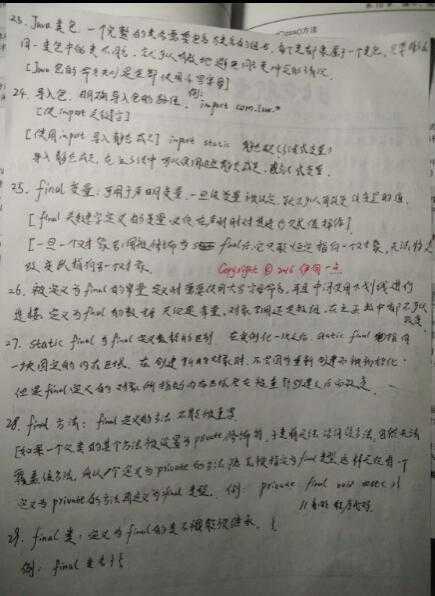 23. Java类包 一个完整的类名需要包名与类名的组合，每个类都隶属于一个类包，只要保证
同一类包中的类不同名，就可以有效地避免同名类冲突的情况。
[Java包的命名规则是全部使用小写字母]
24. 导入包，明确导入包的路径。例: import com.lzw.*
[使用import关键字]
[使用import导入静态成员] import static 静态成员(方法或变量)
导入静态成员，在主方法中可以使用这些静态成员，方法或变量.
25. final变量: 可用于声明变量，一旦该变量被设定，就不可以再改变该变量的值.
[final关键字定义的变量必须在声明时对其进行赋值操作]
[一旦一个对象引用被修饰为final后，它只能恒定指向一个对象，无法将其
改变以指向另一个对象.
Copyright © 2016 伊阿一点
26. 被定义为final的常量定义时需要使用大写字母命名，并且中间使用下划线进行
连接. 定义为final的数据无论是常量、对象引用还是数组，在主函数中都不可以
改变
27. static final与final定义数据的区别 在实例化一次后，static final指同
一块固定的内存区域，在创建新的对象时，不会因为重新创建而被初始化.
但是final定义的对象所指的内存区域会在被重新创建之后而改变.
28. final方法: final定义的方法不能被重写
[如果一个父类的某个方法被设置为private修饰符，子类将无法访问该方法，自然无法
覆盖该方法，所以一个定义为private的方法隐式被指定为final类型，这样无须将一个
定义为private的方法再定义为final类型. 例: private final void test(){
29. final类: 定义为final的类不能被继承.
例: final 类名{}